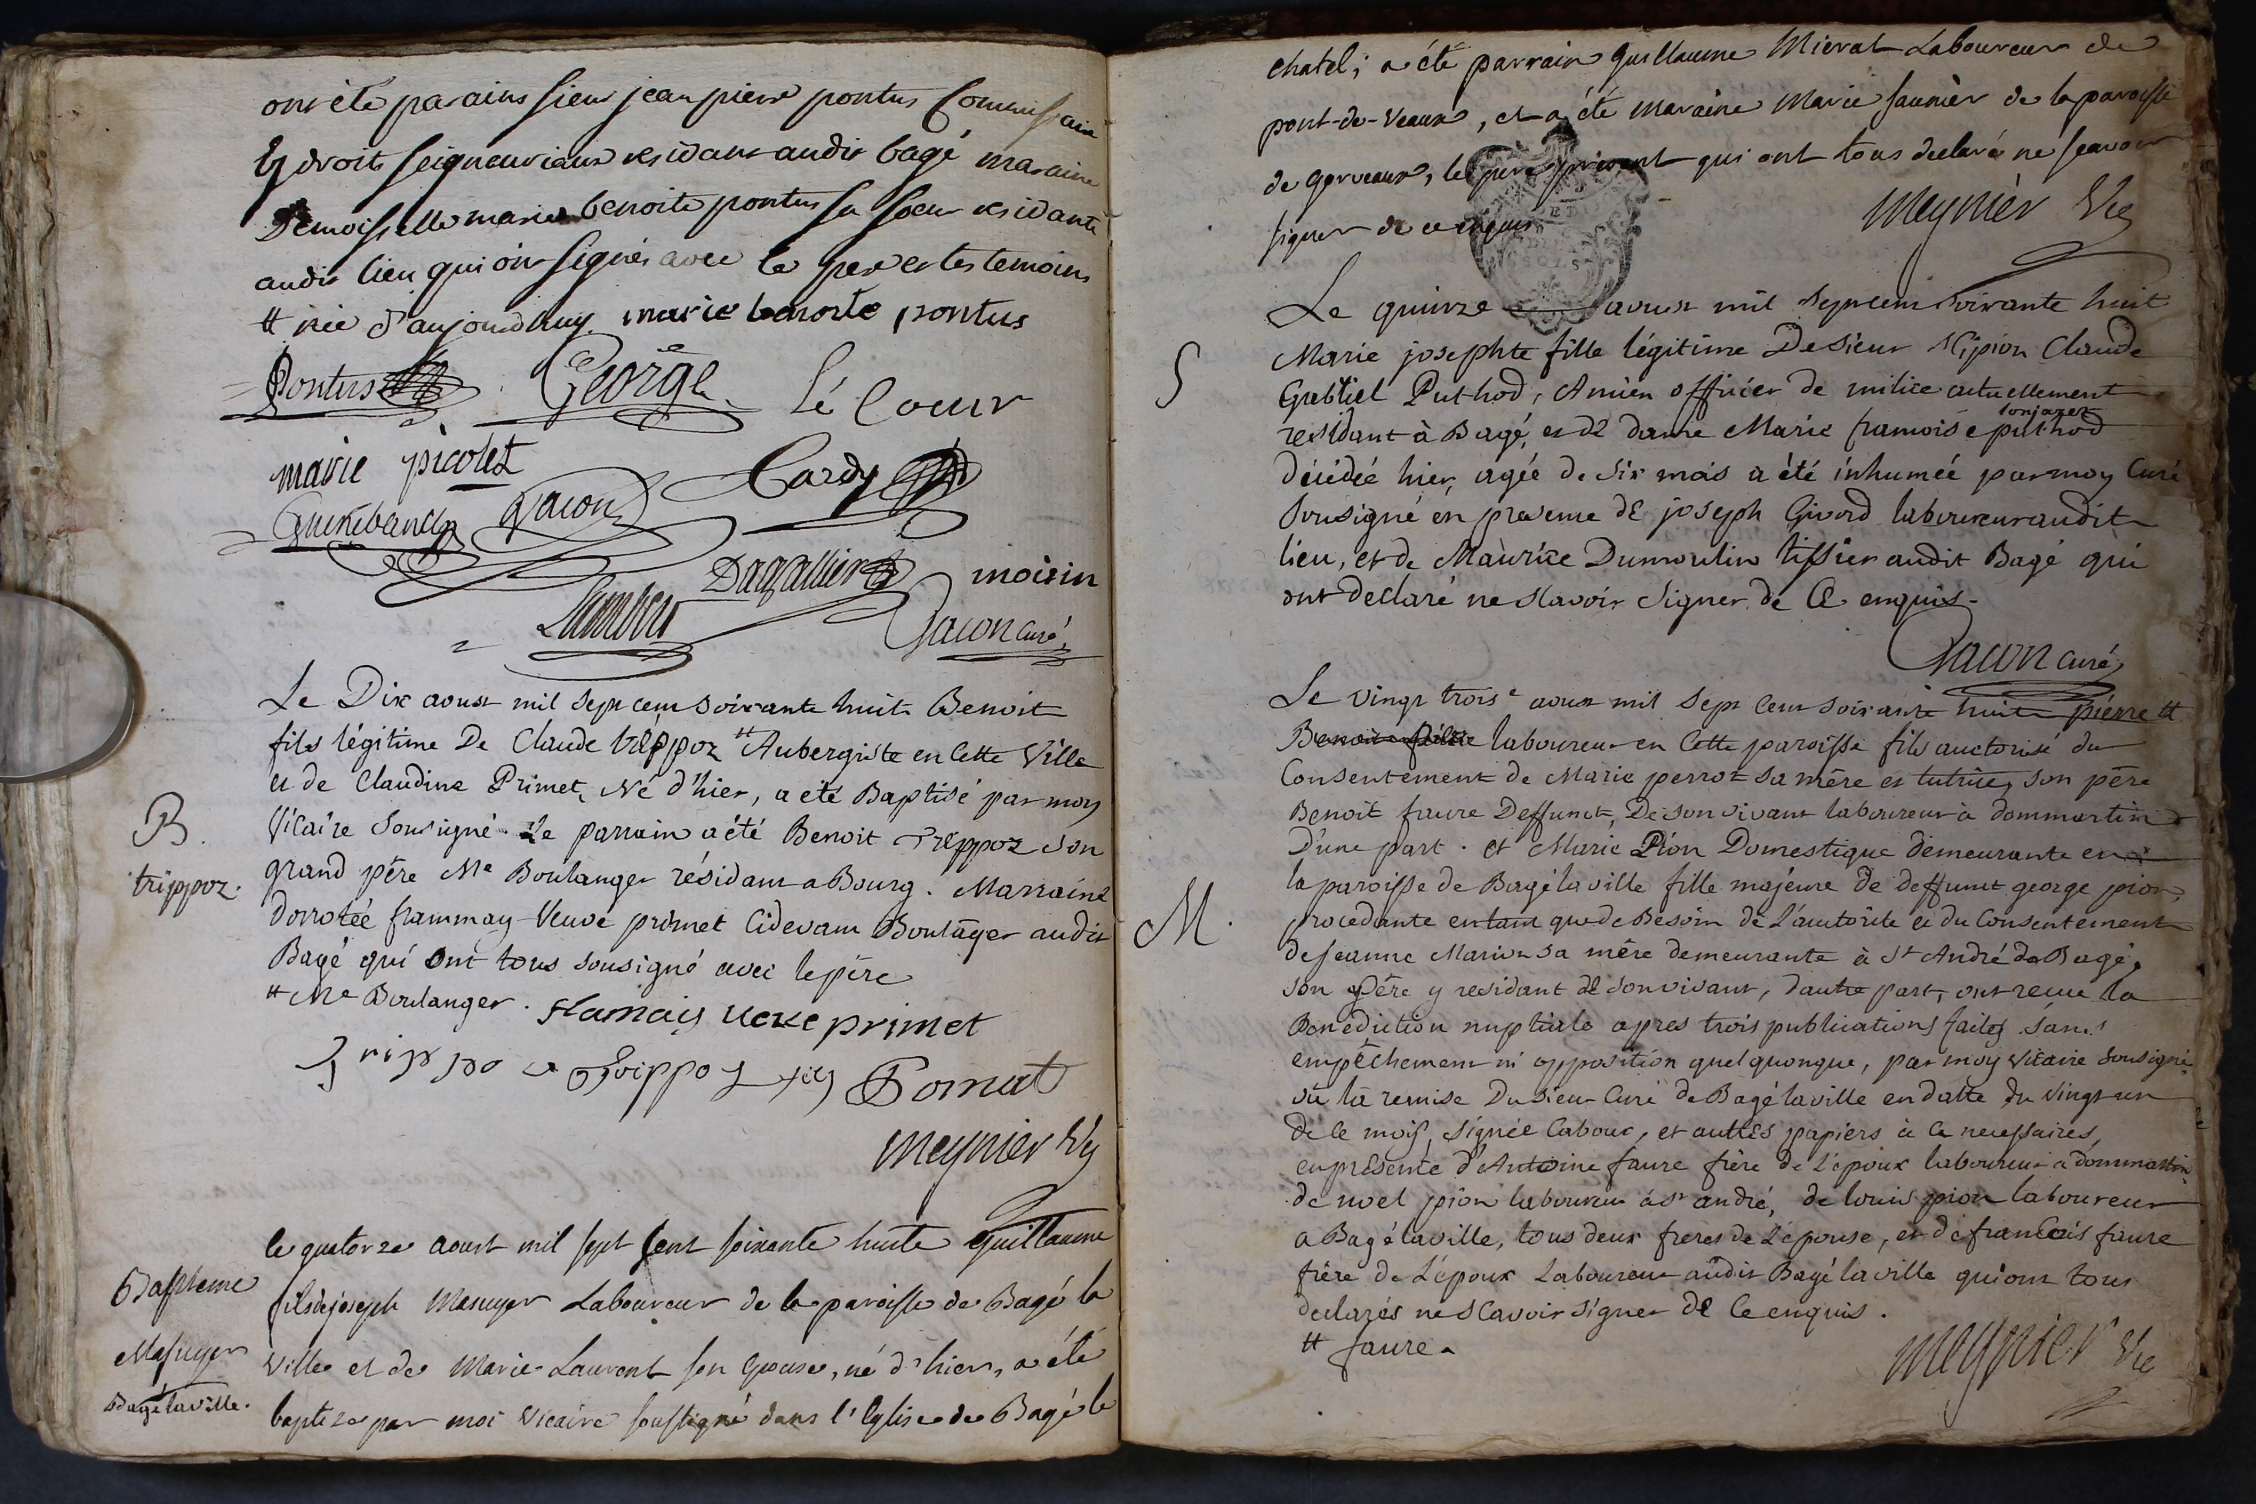 ont été parains sieur jean piere pontus Commissaire
Ez droits seigneuriaux residant audit bagé maraine
Demoisselle marie benoite pontus sa soeur residante
audit lieu qui ont signés avec le pere et les temoins
# née d'aujourdhuy. marie benoite pontus
Pontus George Lé Coeur
marie picolet Cardy
Guenebaud Gacon
Dagallier moisin
Lambert Gacon curé
Le Dix aoust mil sept cent soixante huit Benoit
fils légitime De Claude treppoz # Aubergiste en Cette Ville
et de Claudine Primet, Né d'hier, a été Baptisé par moy
B. Vicaire sousigné Le parrain a été Benoit Treppoz son
trippoz. grand pére Me Boulanger résidant a Bourg. Marraine
Dorotée frammay Veuve primet Cidevant Boulanger audit
Bagé qui Ont tous sousigné avec le pére
# Me Boulanger. flamais veuve primet
Trippoz Trippoz fils Pornat
Meynier Vic
le quatorze aoust mil sept cent soixante huite Guillaume
Bapteme fils de joseph Masuyer Laboureur de la paroisse de Bagé la
Masuyer ville et de Marie Laurent son Epouse, né d'hier, a été
Bagé la ville. baptisé par moi Vicaire soussigné dans l'Eglise de Bagé le
chatel; a été parrain Guillaume Mierat Laboureur de
pont-de-Veaux, et a été maraine Marie saunier de la paroisse
de gorveaux, le pere présent qui ont tous declaré ne sçavoir
signer de ce enquis
Meynièr Vic
Le quinze aoust mil sept cent soixante huit
S Marie josephte fille légitime De sieur scipion Claude
Gabriel Puthod, Ancien officier de milice actuellement
residant à Bagé, et de dame Marie francoise sonjanet puthod
décédée hier, agée de six mois a été inhumée par moy Curé
sousigné en presence de joseph Givord laboureur audit
lieu, et de Maurice Dumoulin tissier audit Bagé qui
ont declaré ne scavoir signer de Ce enquis.
Gacon curé
Le vingt trois e aoust mil sept Cent soixante huite pierre #
Benoit laboureur en Cette paroisse fils auctorisé du
Consentement de Marie perrot sa mére et tutrice, son pére
Benoit faure Deffunct, De son vivant laboureur à dommartin
D'une part. et Marie Pion Domestique demeurante en
la paroisse de Bagé la ville fille majeure de deffunt george pion,
M. procedante entant que de Besoin de L'autorité et du Consentement
de jeanne Marion sa mére demeurante à St André de Bagé,
son Pére y residant de son vivant, d'autre part, ont recue la
Benediction nuptiale apres trois publications faites sans
empêchement ni opposition quelquonque, par moy Vicaire sousigné
vu la remise Du sieur Curé de Bagé la ville en datte du vingt un
de Ce mois, signée Cabouc, et autres papiers à Ce necessaires,
en présence d'Antoine faure frère de L'epoux laboureur a dommartin
de noel pion laboureur à st andré, de louis pion laboureur
a Bagé la ville, tous deux freres de L'épouse, et de francois faure
frére de L'époux Laboureur audit Bagé la ville qui ont tous
declarés ne scavoir signer de Ce enquis.
# faure.
Meynier Vic